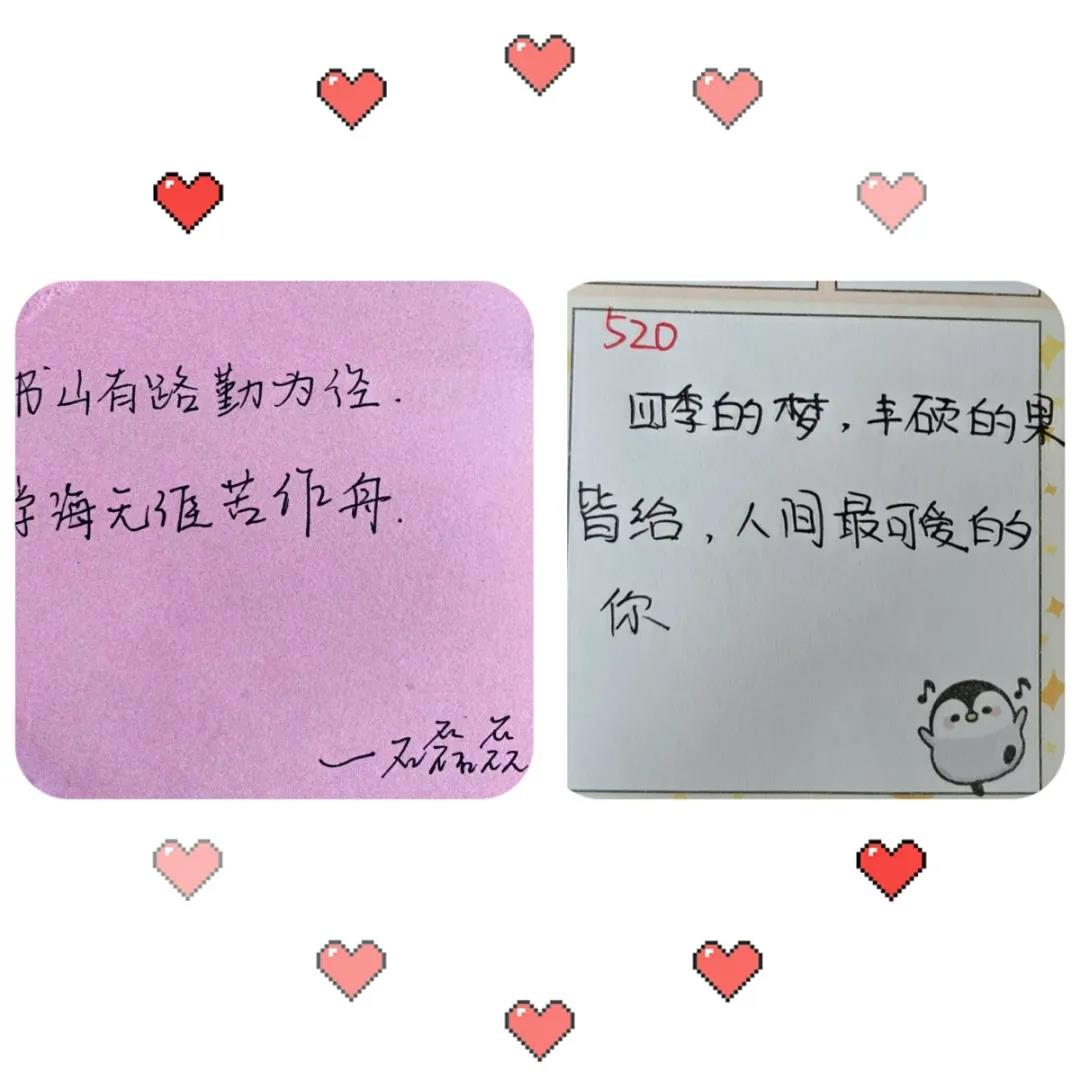 书山有路勤为径.
学海无涯苦作舟.
一石磊磊
520
四季的梦,丰硕的果
皆给,人间最可爱的
你